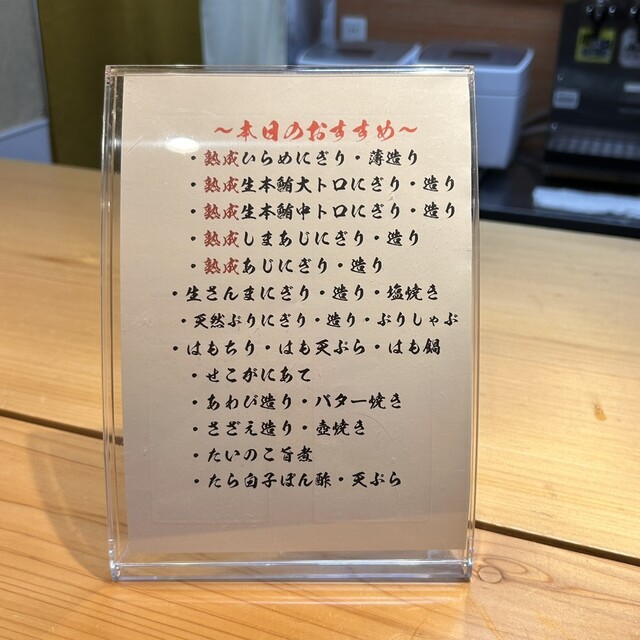 ～本日のおすすめ～
・熟成いらめにぎり・薄造り
・熟成生本鮪大トロにぎり・造り
・熟成生本鮪中トロにぎり・造り
・熟成しまあじにぎり・造り
・熟成あじにぎり・造り
・生さんまにぎり・造り・塩焼き
・天然ぶりにぎり・造り・ぶりしゃぶ
・はもちり・はも天ぷら・はも鍋
・せこがにあて
・あわび造り・バター焼き
・さざえ造り・壺焼き
・たいのこ旨煮
・たら白子ぽん酢・天ぷら